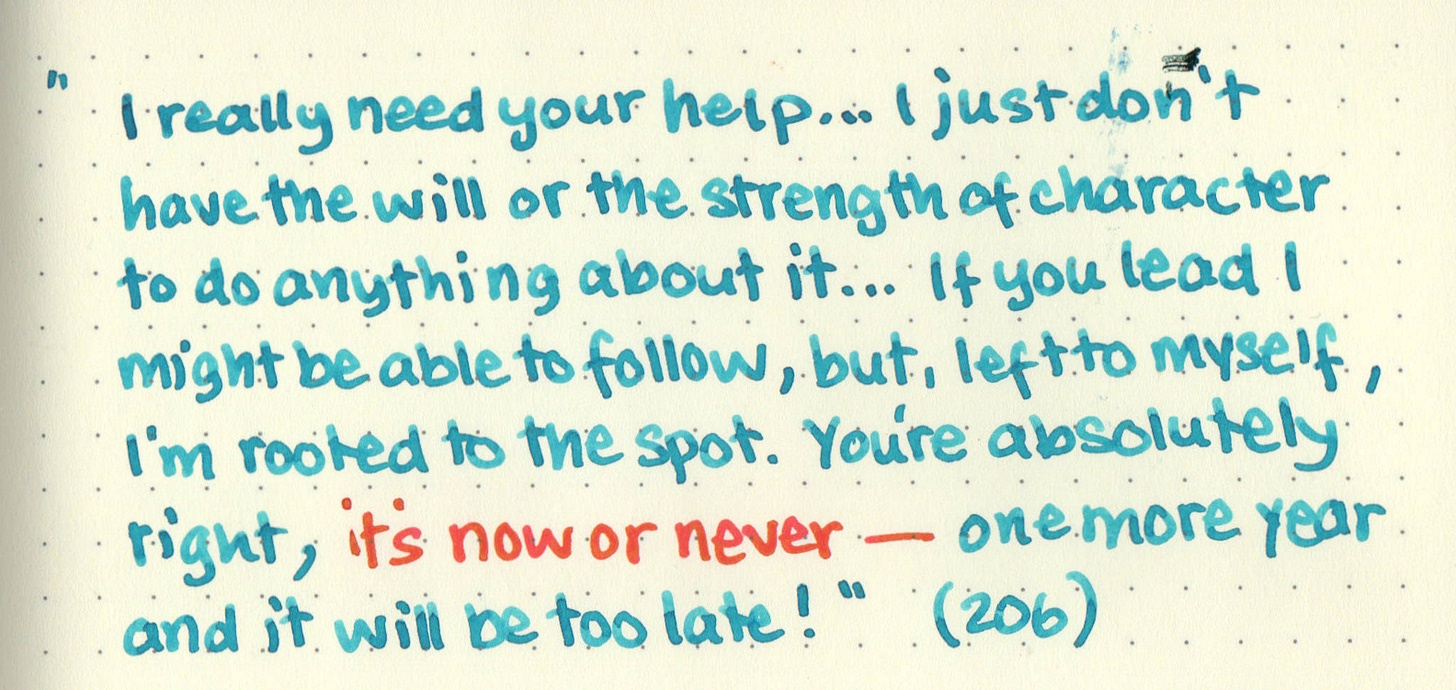 "I really need your help... I just don't
have the will or the strength of character
to do anything about it... If you lead I
might be able to follow, but, left to myself,
I'm rooted to the spot. You're absolutely
right, it's now or never — one more year
and it will be too late!" (206)